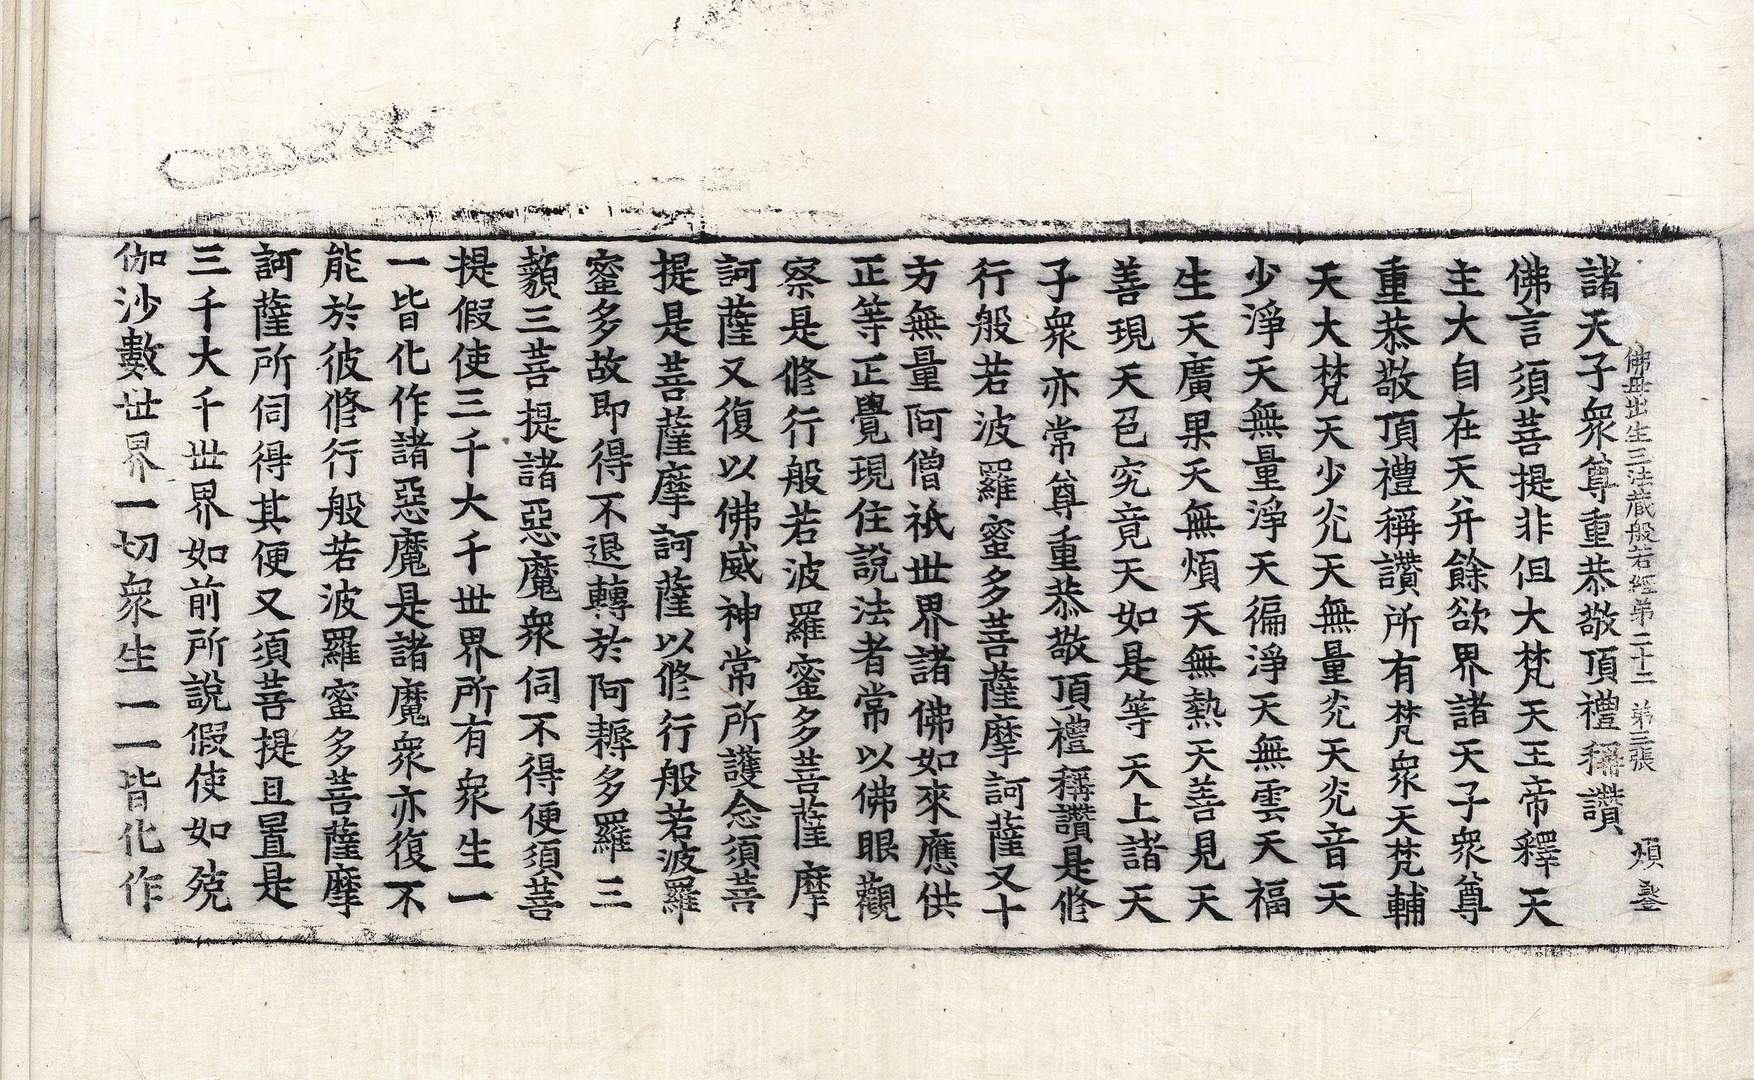 佛母出生三法藏般若經第二十二 第三張 煩
諸天子衆尊重恭敬頂禮稱讚
佛言須菩提非但大梵天王帝釋天
主大自在天幷餘欲界諸天子衆尊
重恭敬頂禮稱讚所有梵衆天梵輔
天大梵天少光天無量光天光音天
少淨天無量淨天徧淨天無雲天福
生天廣果天無煩天無熱天善見天
善現天色究竟天如是等天上諸天
子衆亦常尊重恭敬頂禮稱讚是修
行般若波羅蜜多菩薩摩訶薩又十
方無量阿僧祇世界諸佛如來應供
正等正覺現住說法者常以佛眼觀
察是修行般若波羅蜜多菩薩摩
訶薩又復以佛威神常所護念須菩
提是菩薩摩訶薩以修行般若波羅
蜜多故即得不退轉於阿耨多羅三
藐三菩提諸惡魔衆伺不得便須菩
提假使三千大千世界所有衆生一
一皆化作諸惡魔是諸魔衆亦復不
能於彼修行般若波羅蜜多菩薩摩
訶薩所伺得其便又須菩提且置是
三千大千世界如前所說假使如殑
伽沙數世界一切衆生一一皆化作